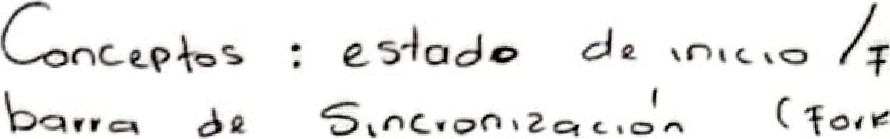 Conceptos : estado de inicio / F
barra de Sincronización (Fork